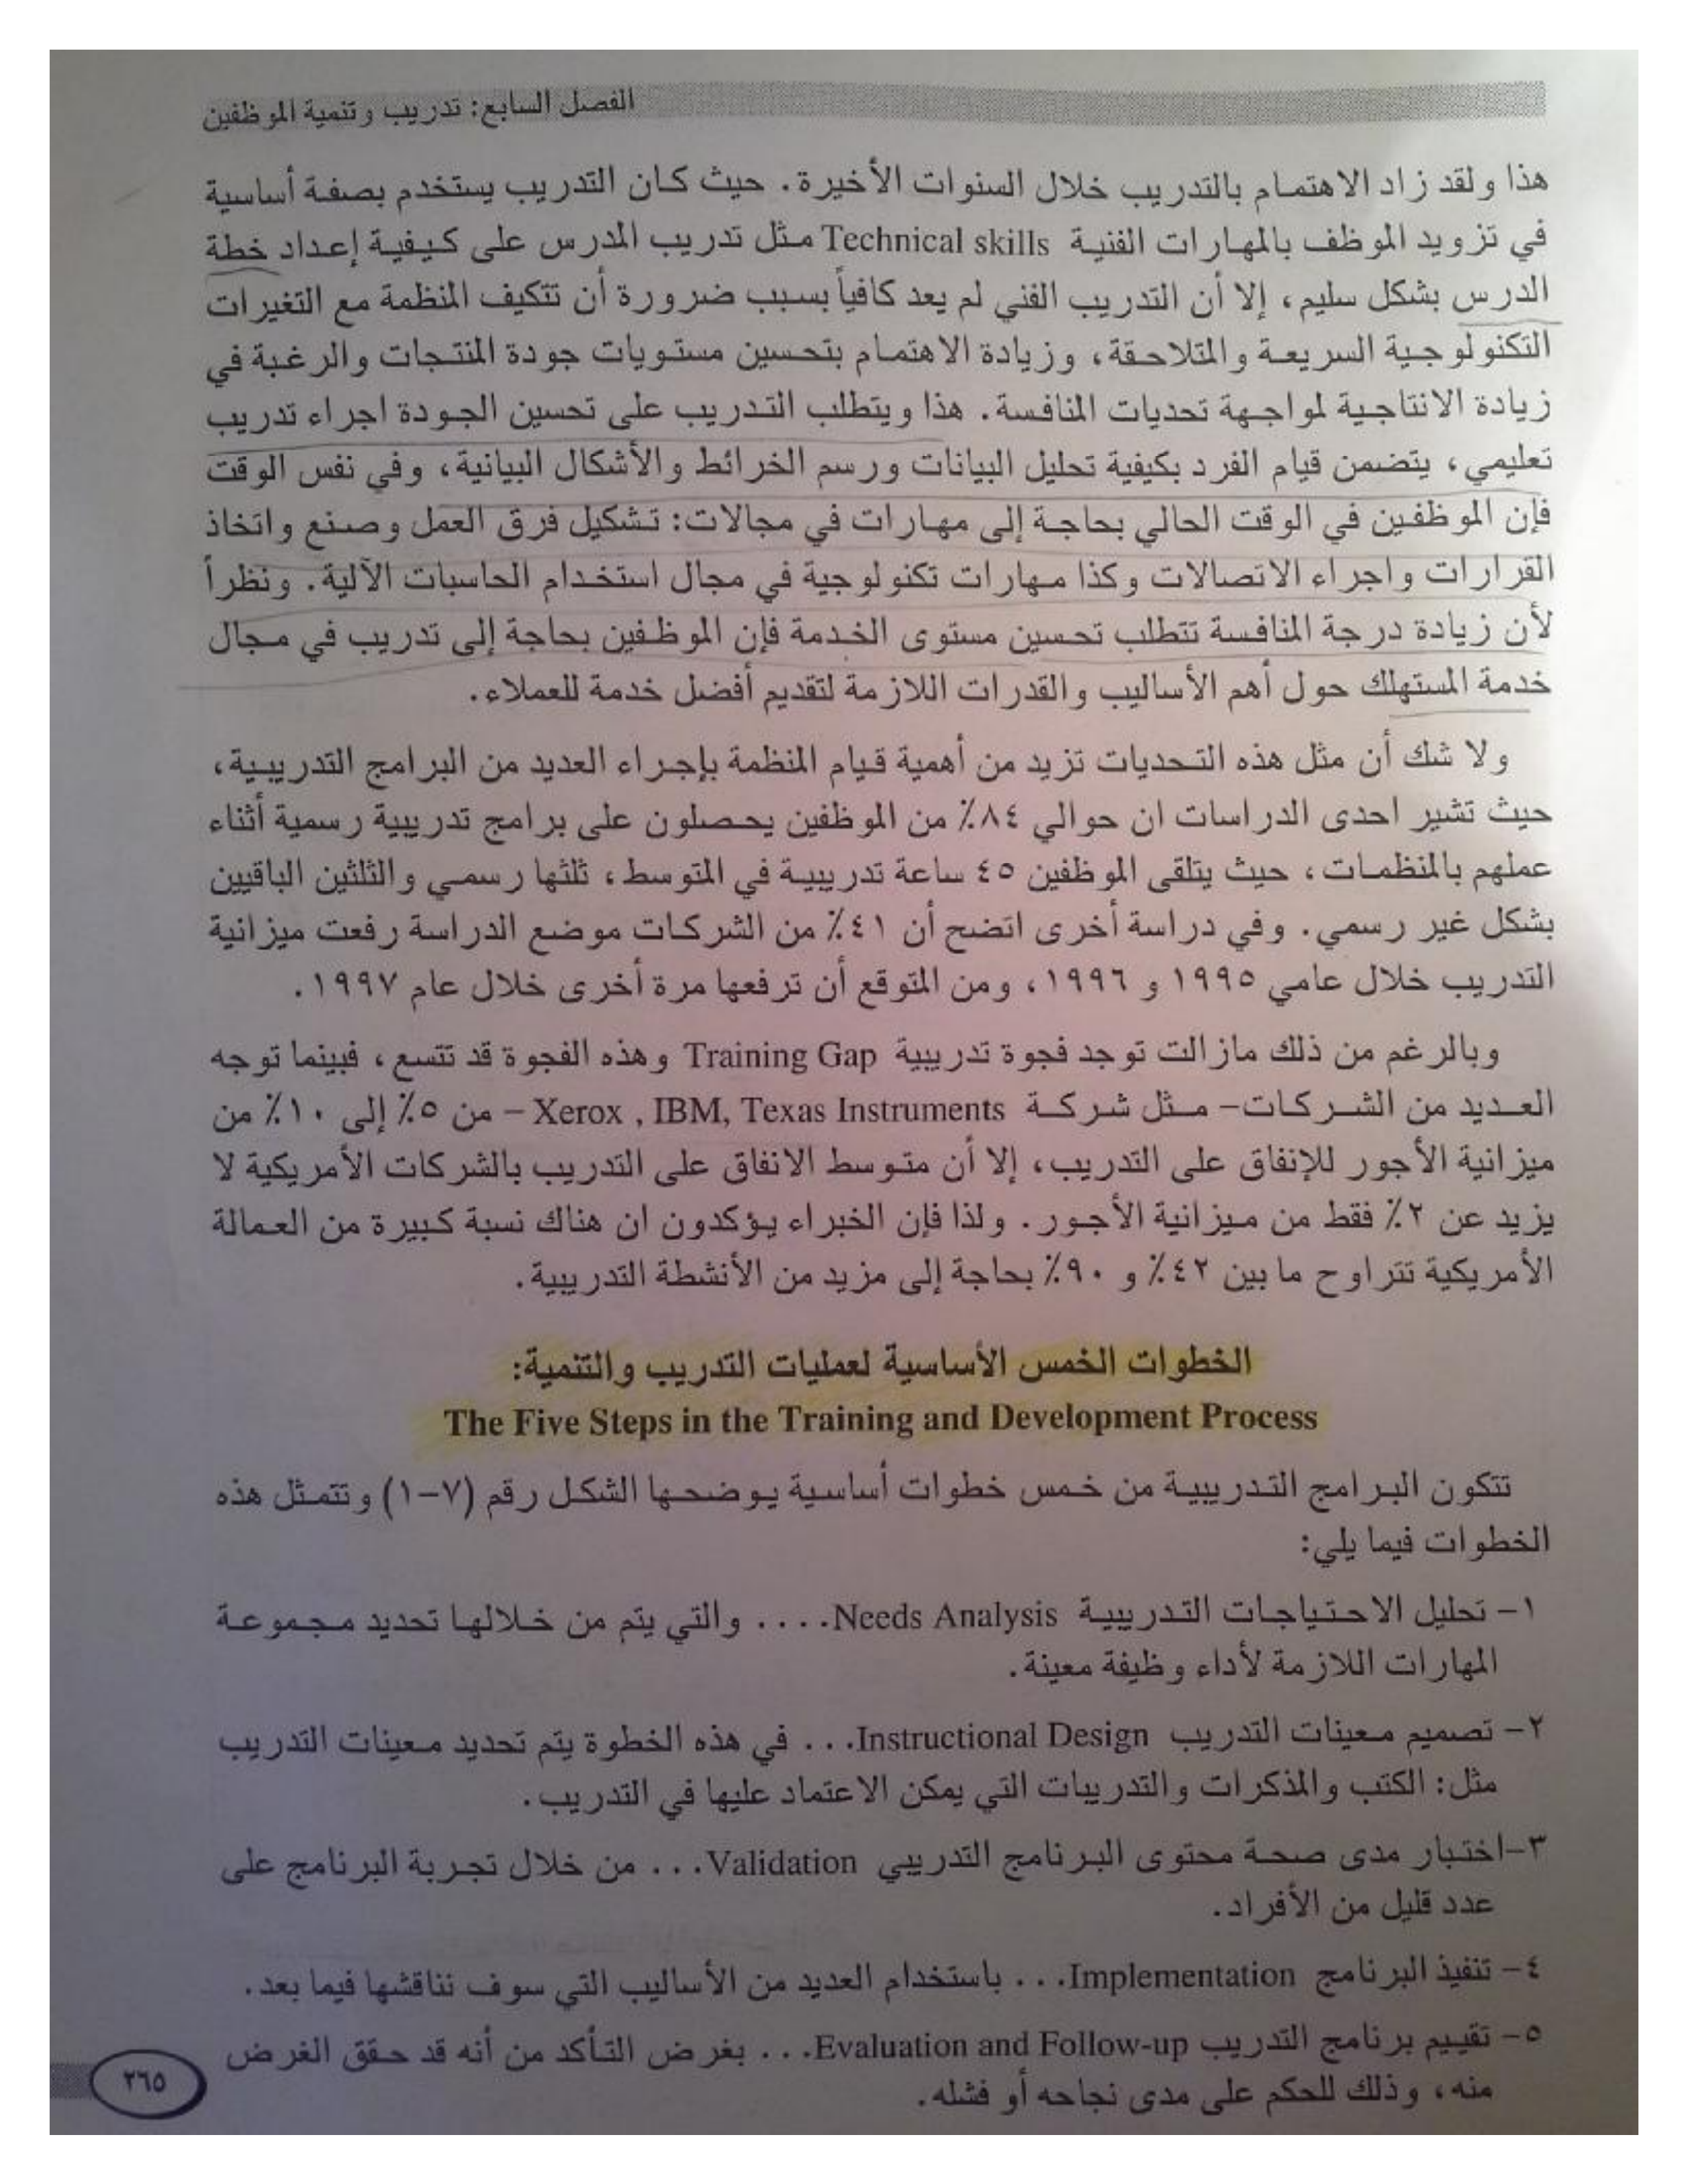 الفصل السابع: تدريب وتنمية الموظفين
هذا ولقد زاد الاهتمام بالتدريب خلال السنوات الأخيرة. حيث كان التدريب يستخدم بصفة أساسية
في تزويد الموظف بالمهارات الفنية Technical skills مثل تدريب المدرس على كيفية إعداد خطة
الدرس بشكل سليم، إلا أن التدريب الفني لم يعد كافياً بسبب ضرورة أن تتكيف المنظمة مع التغيرات
التكنولوجية السريعة والمتلاحقة، وزيادة الاهتمام بتحسين مستويات جودة المنتجات والرغبة في
زيادة الانتاجية لمواجهة تحديات المنافسة. هذا ويتطلب التدريب على تحسين الجودة اجراء تدريب
تعليمي، يتضمن قيام الفرد بكيفية تحليل البيانات ورسم الخرائط والأشكال البيانية، وفي نفس الوقت
فإن الموظفين في الوقت الحالي بحاجة إلى مهارات في مجالات: تشكيل فرق العمل وصنع واتخاذ
القرارات واجراء الاتصالات وكذا مهارات تكنولوجية في مجال استخدام الحاسبات الآلية. ونظراً
لأن زيادة درجة المنافسة تتطلب تحسين مستوى الخدمة فإن الموظفين بحاجة إلى تدريب في مجال
خدمة المستهلك حول أهم الأساليب والقدرات اللازمة لتقديم أفضل خدمة للعملاء.
ولا شك أن مثل هذه التحديات تزيد من أهمية قيام المنظمة بإجراء العديد من البرامج التدريبية،
حيث تشير احدى الدراسات ان حوالي ٨٤٪ من الموظفين يحصلون على برامج تدريبية رسمية أثناء
عملهم بالمنظمات، حيث يتلقى الموظفين ٤٥ ساعة تدريبية في المتوسط، ثلثها رسمي والثلثين الباقيين
بشكل غير رسمي. وفي دراسة أخرى اتضح أن ٤١٪ من الشركات موضع الدراسة رفعت ميزانية
التدريب خلال عامي ١٩٩٥ و ١٩٩٦، ومن المتوقع أن ترفعها مرة أخرى خلال عام ١٩٩٧.
وبالرغم من ذلك مازالت توجد فجوة تدريبية Training Gap وهذه الفجوة قد تتسع، فبينما توجه
العديد من الشركات- مثل شركة Xerox , IBM, Texas Instruments – من ٥٪ إلى ١٠٪ من
ميزانية الأجور للإنفاق على التدريب، إلا أن متوسط الانفاق على التدريب بالشركات الأمريكية لا
يزيد عن ٢٪ فقط من ميزانية الأجور. ولذا فإن الخبراء يؤكدون ان هناك نسبة كبيرة من العمالة
الأمريكية تتراوح ما بين ٤٢٪ و ٩٠٪ بحاجة إلى مزيد من الأنشطة التدريبية.
الخطوات الخمس الأساسية لعمليات التدريب والتنمية:
The Five Steps in the Training and Development Process
تتكون البرامج التدريبية من خمس خطوات أساسية يوضحها الشكل رقم (٧-١) وتتمثل هذه
الخطوات فيما يلي:
١- تحليل الاحتياجات التدريبية Needs Analysis.... والتي يتم من خلالها تحديد مجموعة
المهارات اللازمة لأداء وظيفة معينة.
٢- تصميم معينات التدريب Instructional Design... في هذه الخطوة يتم تحديد معينات التدريب
مثل: الكتب والمذكرات والتدريبات التي يمكن الاعتماد عليها في التدريب.
٣-اختبار مدى صحة محتوى البرنامج التدريبي Validation... من خلال تجربة البرنامج على
عدد قليل من الأفراد.
٤- تنفيذ البرنامج Implementation... باستخدام العديد من الأساليب التي سوف نناقشها فيما بعد.
٥- تقييم برنامج التدريب Evaluation and Follow-up... بغرض التأكد من أنه قد حقق الغرض
منه، وذلك للحكم على مدى نجاحه أو فشله.
٢٦٥